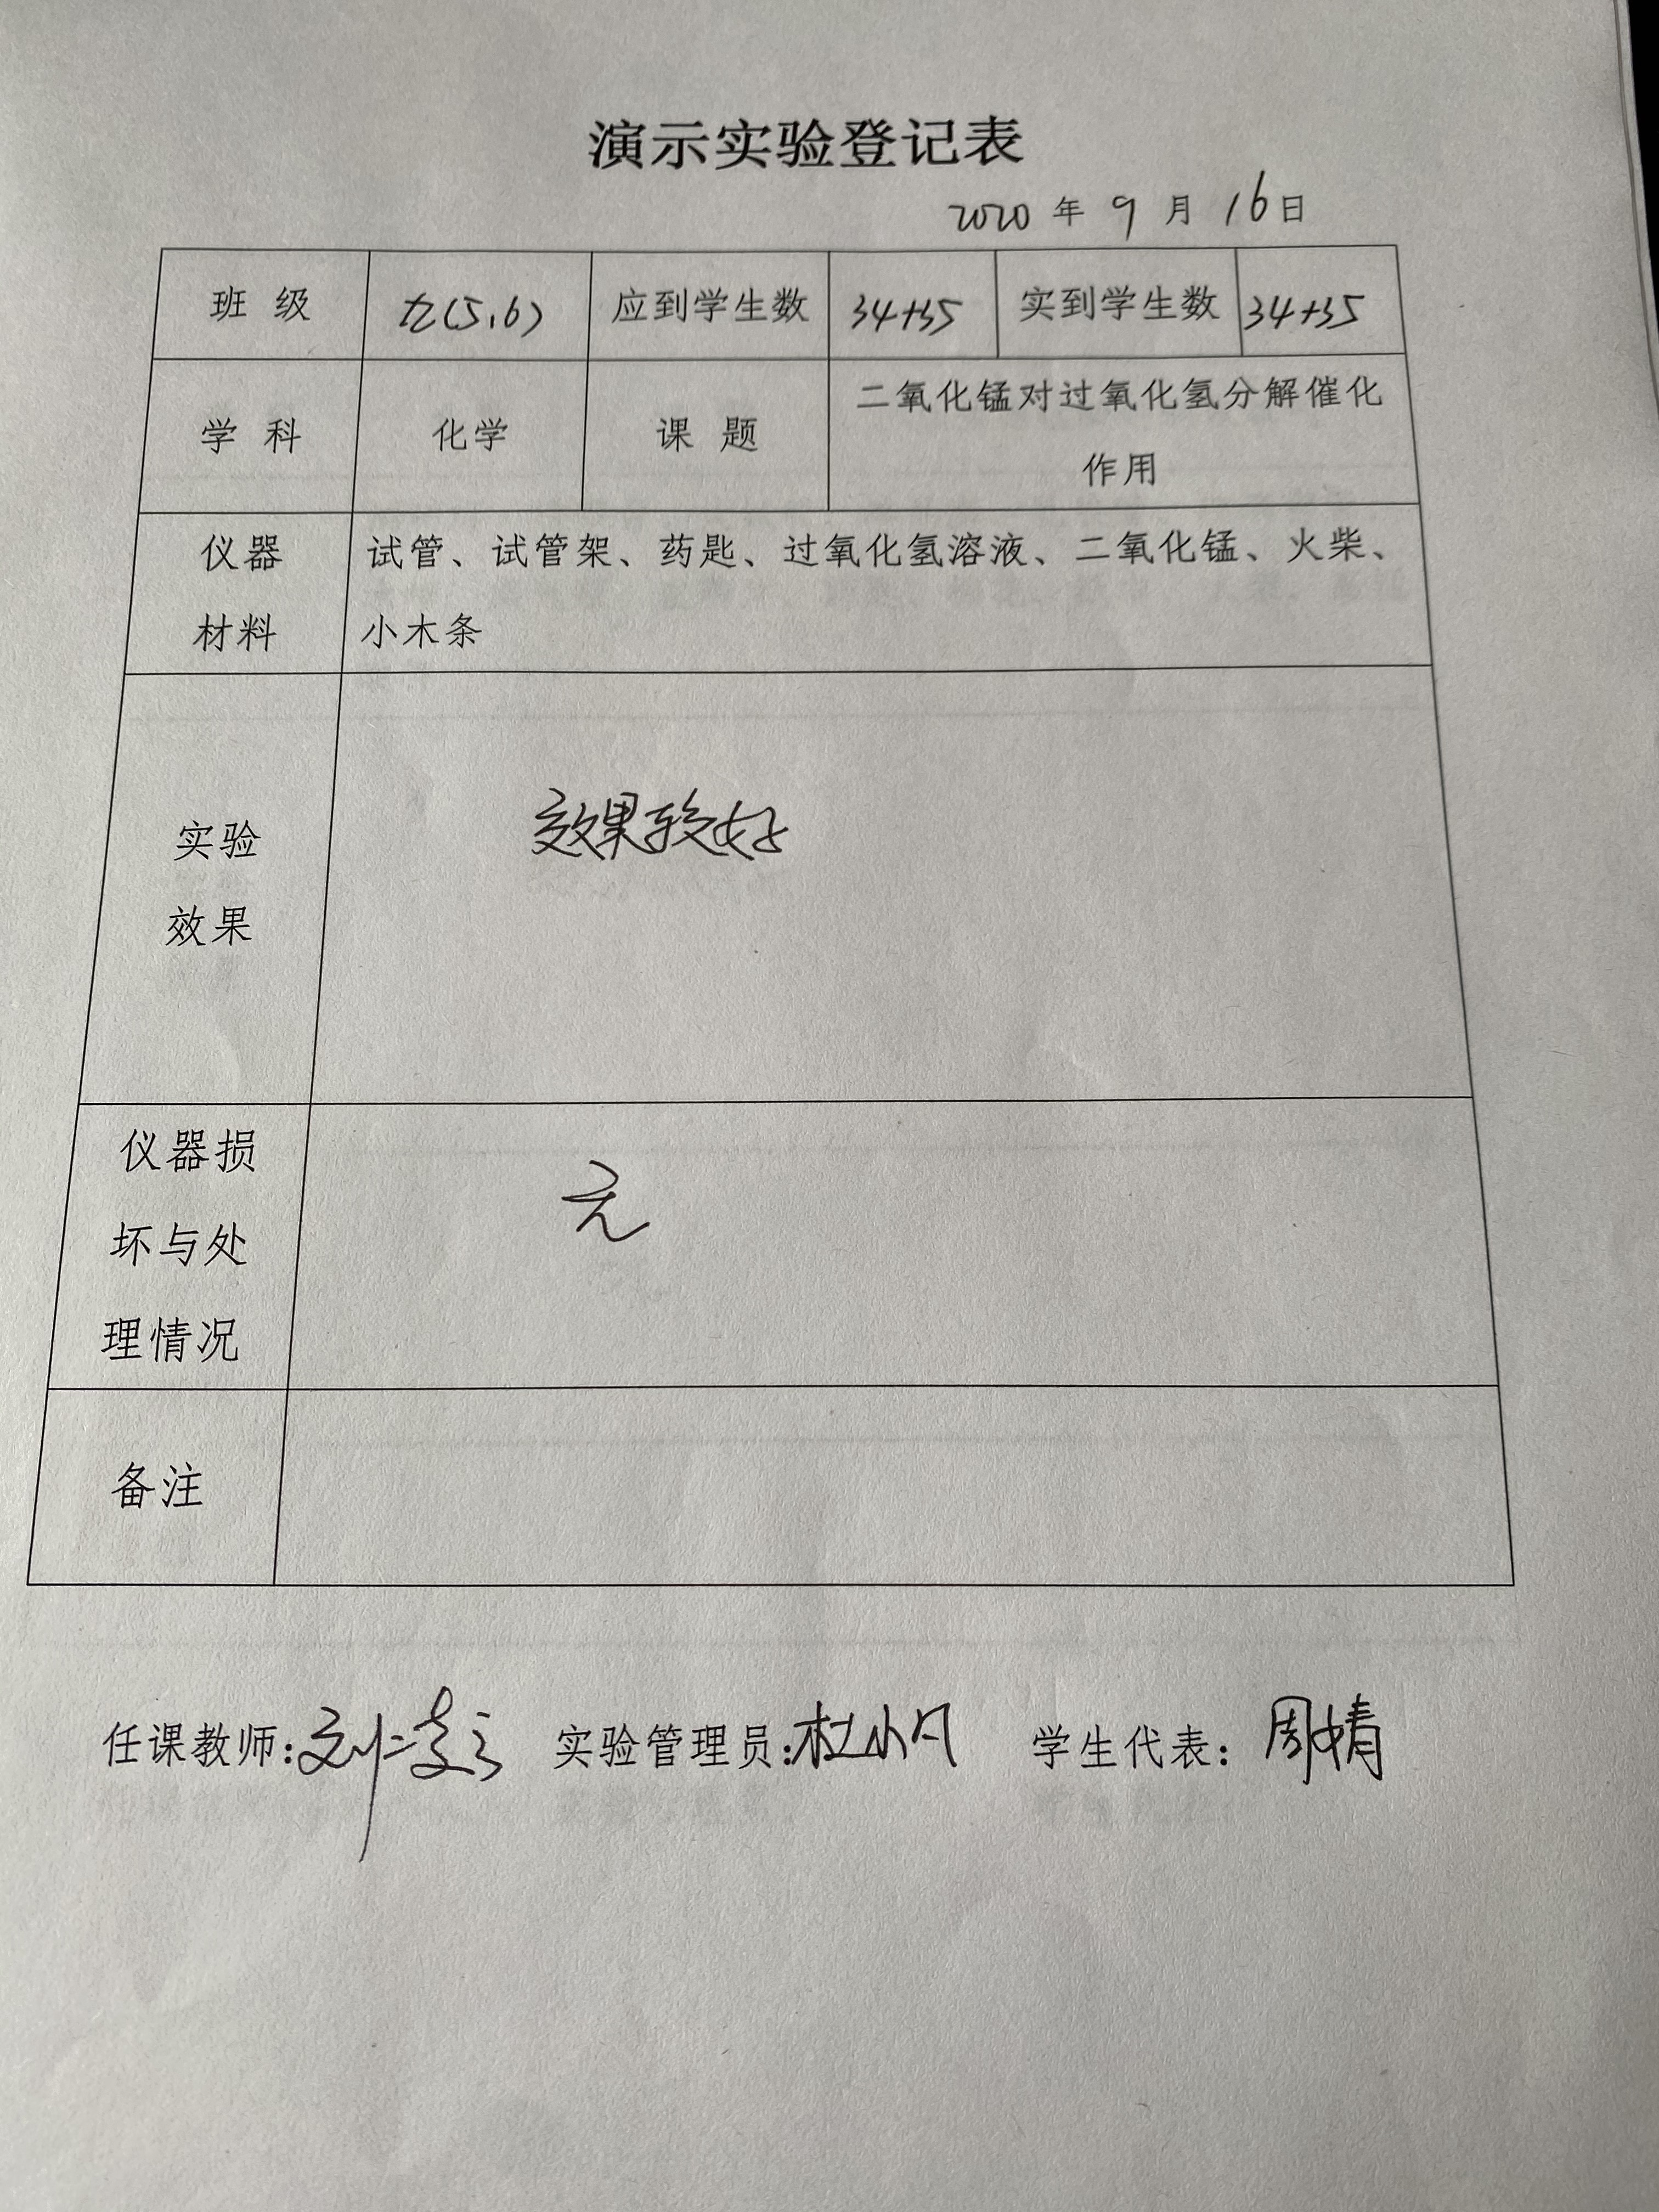 演示实验登记表
2020 年 9 月 16 日
班 级 九(5,6) 应到学生数 34+35 实到学生数 34+35
学 科 化学 课 题 二氧化锰对过氧化氢分解催化
作用
仪器 试管、试管架、药匙、过氧化氢溶液、二氧化锰、火柴、
材料 小木条
实验 效果较好
效果
仪器损
坏与处 无
理情况
备注
任课教师: 实验管理员:杜小凡 学生代表: 周婧